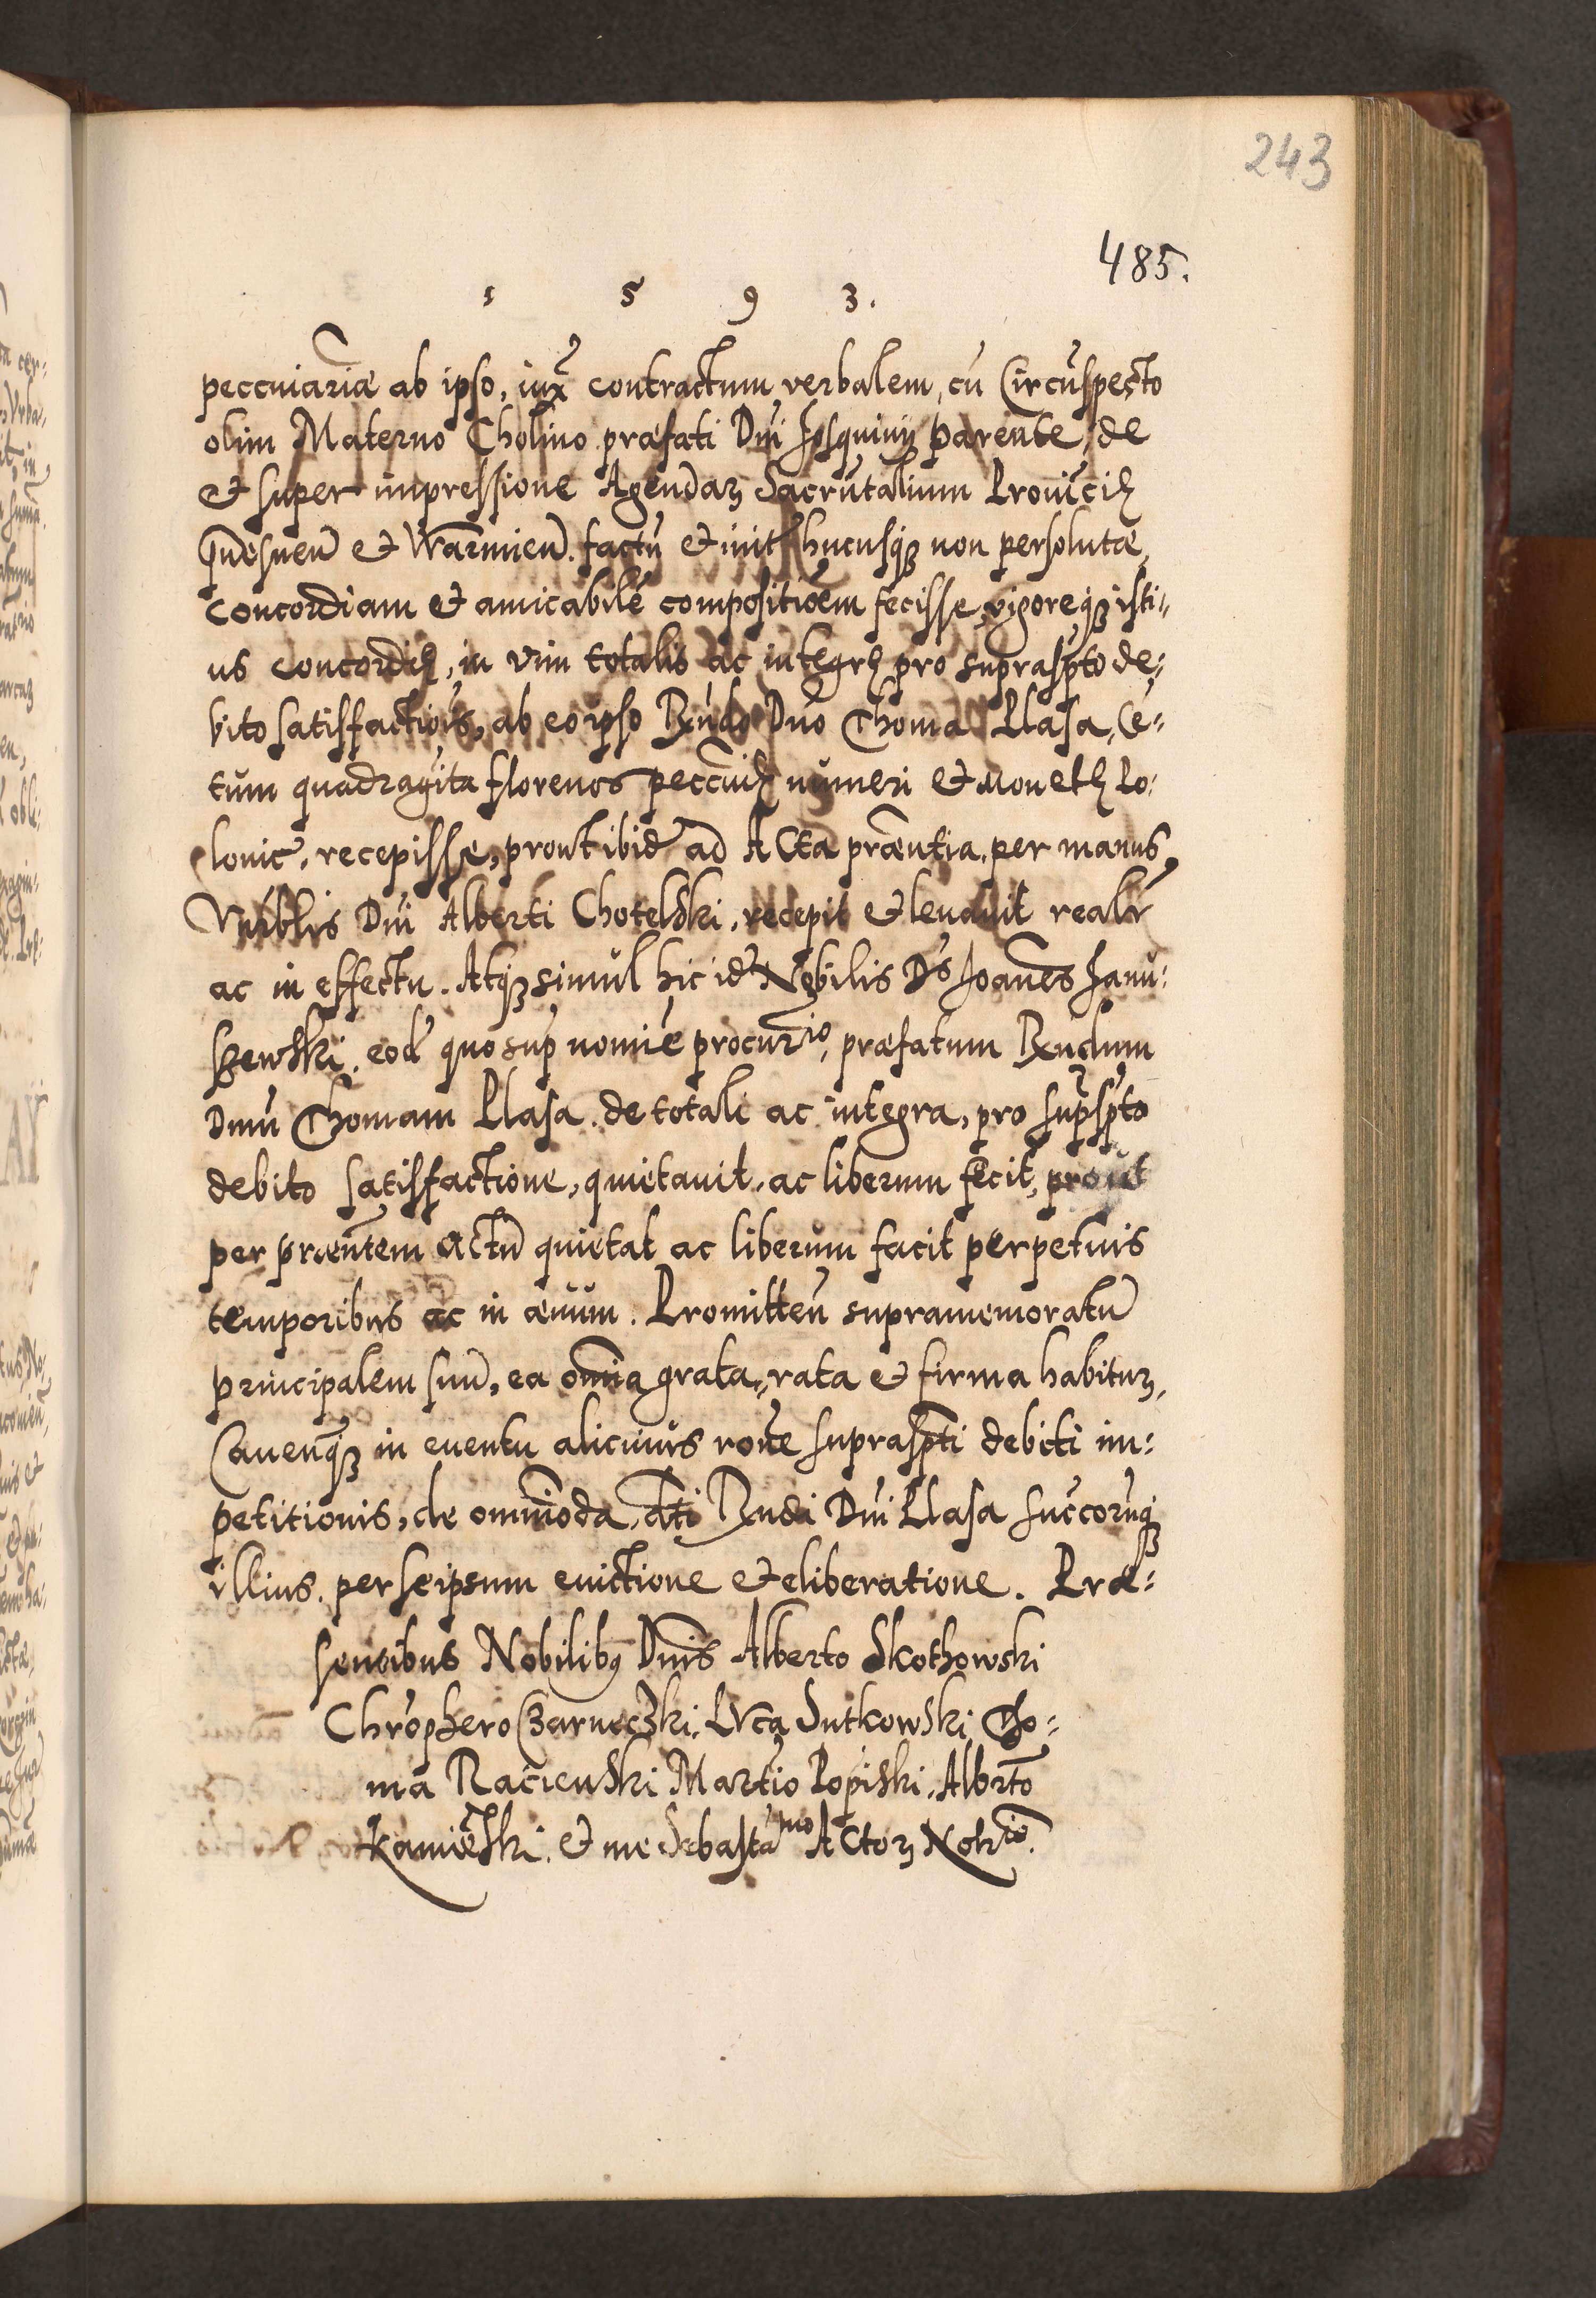 243
485.
1 5 9 3.
peccuniariæ ab ipso, iuxᵃ contractum verbalem, cū Circūspecto
olim Materno Cholino præfati Dni Josquinij parente, de
et super impressione Agendarꝫ Sacrūtalium Prouīciæ
Gnesnen̄ et Warmien̄. factū et init̄ hucusqꝫ non persolutæ,
concordiam et amicabilē compositioēm fecisse, vigoreqꝫ isti⸗
us concordiæ, in vim totalis ac integræ pro suprasp̄to de⸗
bito satisfactiōis, ab eo ipso Rx̄ndo Dn̄o Thoma Plasa, Cē⸗
tum quadragīta florenos peccūiæ numeri et Monetæ Po⸗
lonic̄, recepisse, prout ibid̄ ad Acta præn̄tia per manus
Vn̄iblis Dn̄i Alberti Chotelski, recepit et leuauit realr̄
ac in effectu. Atqꝫ simul hic id̄ Nobilis D̄s Joan̄es Janu⸗
szewski, eod̄ quo sup̄ nomīe procur̄io, præfatum Rx̄ndum
Dnm̄ Thomam Plasa, de totali ac integra, pro sup̄sp̄to
debito satisfactione, quietauit, ac liberum fecit, prout
per præn̄tem actū quietat ac liberum facit perpetuis
temporibus ac in æuum. Promitten̄ supramemoratū
principalem suū, ea omnia grata, rata et firma habiturꝫ,
Cauenqꝫ in euentu alicuius rōne suprasp̄ti debiti im⸗
petitionis, de omn̄ioda, dc̄ti Rx̄ndi Dn̄i Plasa succorūqꝫ
illius, per seipsum euictione et eliberatione. Præ⸗
sentibus Nobilibꝰ Dn̄is Alberto Skothowski
Chrōphero Czarneczki, Luca Sutkowski, Tho⸗
ma Racienski, Martīo Popiski, Albr̄to
Kamiēski, et me Sebastiāno Actorꝫ Not̄rio.